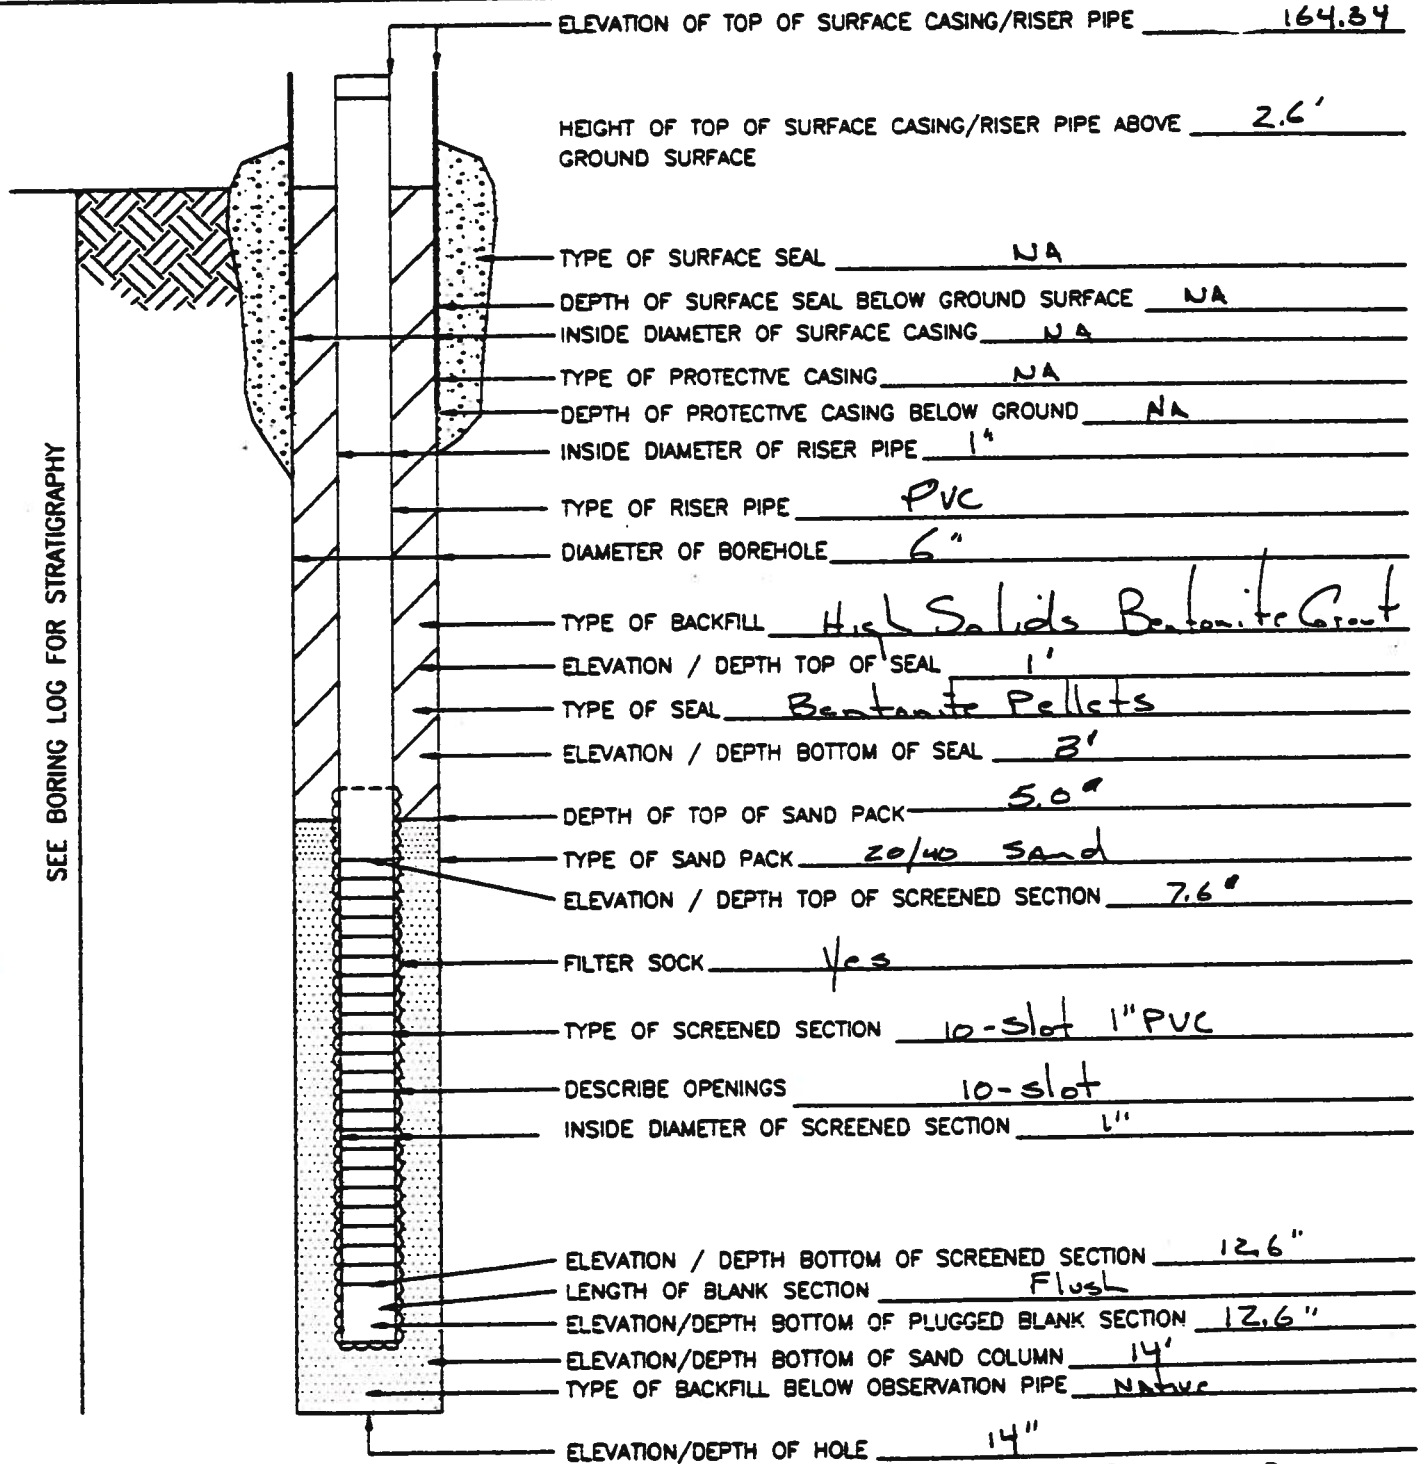 ELEVATION OF TOP OF SURFACE CASING/RISER PIPE 164.34
HEIGHT OF TOP OF SURFACE CASING/RISER PIPE ABOVE 2.6'
GROUND SURFACE
TYPE OF SURFACE SEAL NA
DEPTH OF SURFACE SEAL BELOW GROUND SURFACE NA
INSIDE DIAMETER OF SURFACE CASING NA
TYPE OF PROTECTIVE CASING NA
DEPTH OF PROTECTIVE CASING BELOW GROUND NA
INSIDE DIAMETER OF RISER PIPE 1"
TYPE OF RISER PIPE PVC
DIAMETER OF BOREHOLE 6"
TYPE OF BACKFILL High Solids Bentonite Grout
ELEVATION / DEPTH TOP OF SEAL 1'
TYPE OF SEAL Bentonite Pellets
ELEVATION / DEPTH BOTTOM OF SEAL 3'
DEPTH OF TOP OF SAND PACK 5.0"
TYPE OF SAND PACK 20/40 Sand
ELEVATION / DEPTH TOP OF SCREENED SECTION 7.6"
FILTER SOCK Yes
TYPE OF SCREENED SECTION 10-Slot 1" PVC
DESCRIBE OPENINGS 10-slot
INSIDE DIAMETER OF SCREENED SECTION 1"
ELEVATION / DEPTH BOTTOM OF SCREENED SECTION 12.6"
LENGTH OF BLANK SECTION Flush
ELEVATION/DEPTH BOTTOM OF PLUGGED BLANK SECTION 12.6"
ELEVATION/DEPTH BOTTOM OF SAND COLUMN 14'
TYPE OF BACKFILL BELOW OBSERVATION PIPE Native
ELEVATION/DEPTH OF HOLE 14"
SEE BORING LOG FOR STRATIGRAPHY